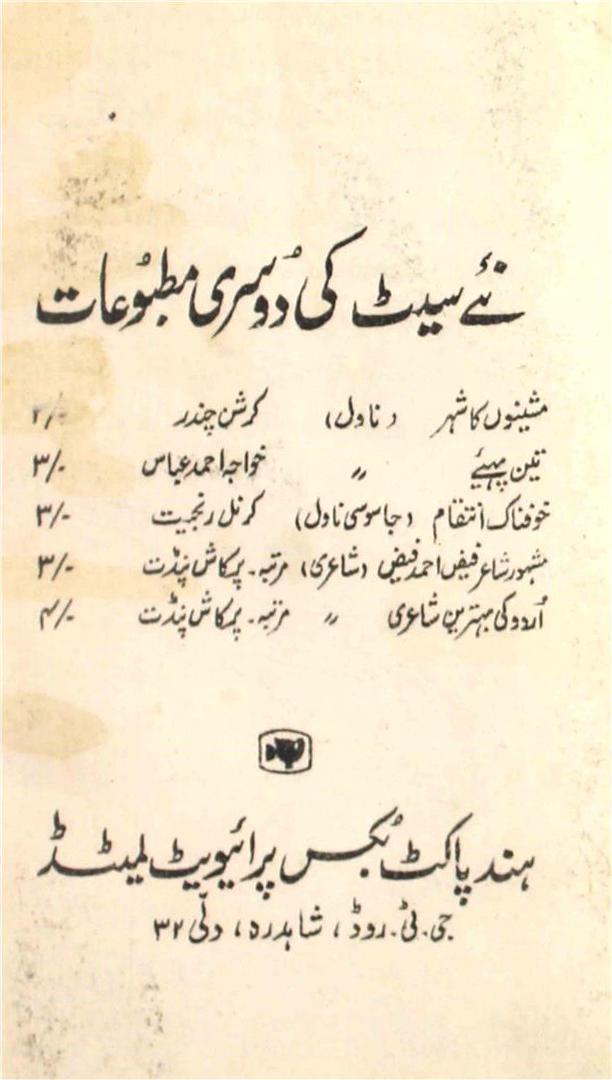 نئے سیٹ کی دُوسری مطبُوعات
مشینوں کا شہر (ناول) کرشن چندر ۲/-
تین پہیئے〃 خواجہ احمد عباس ۳/-
خوفناک انتقام (جاسوسی ناول) کرنل رنجیت ۳/-
مشہور شاعر فیض احمد فیض (شاعری) مرتبہ۔ پرکاش پنڈت ۳/-
اُردو کی بہترین شاعری 〃 مرتبہ۔ پرکاش پنڈت ۴/-
ہند پاکٹ بُکس پرائیویٹ لمیٹڈ
جی۔ٹی۔روڈ، شاہدرہ، دلّی ۳۲